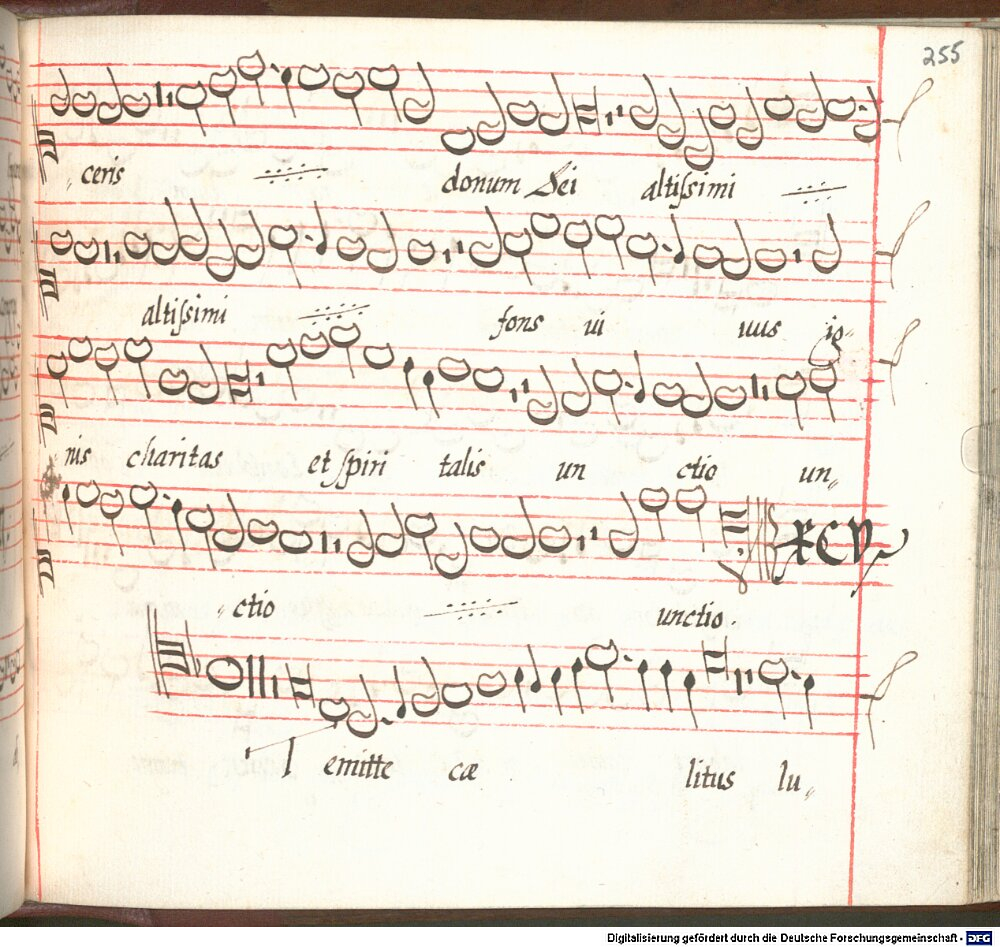 255
ceris donum Dei altiſsimi
altiſsimi fons ui uus ig-
nis charitas et ſpiri talis un ctio un-
XCV
-ctio unctio.
I emitte cæ litus lu-
Digitalisierung gefördert durch die Deutsche Forschungsgemeinschaft - DFG